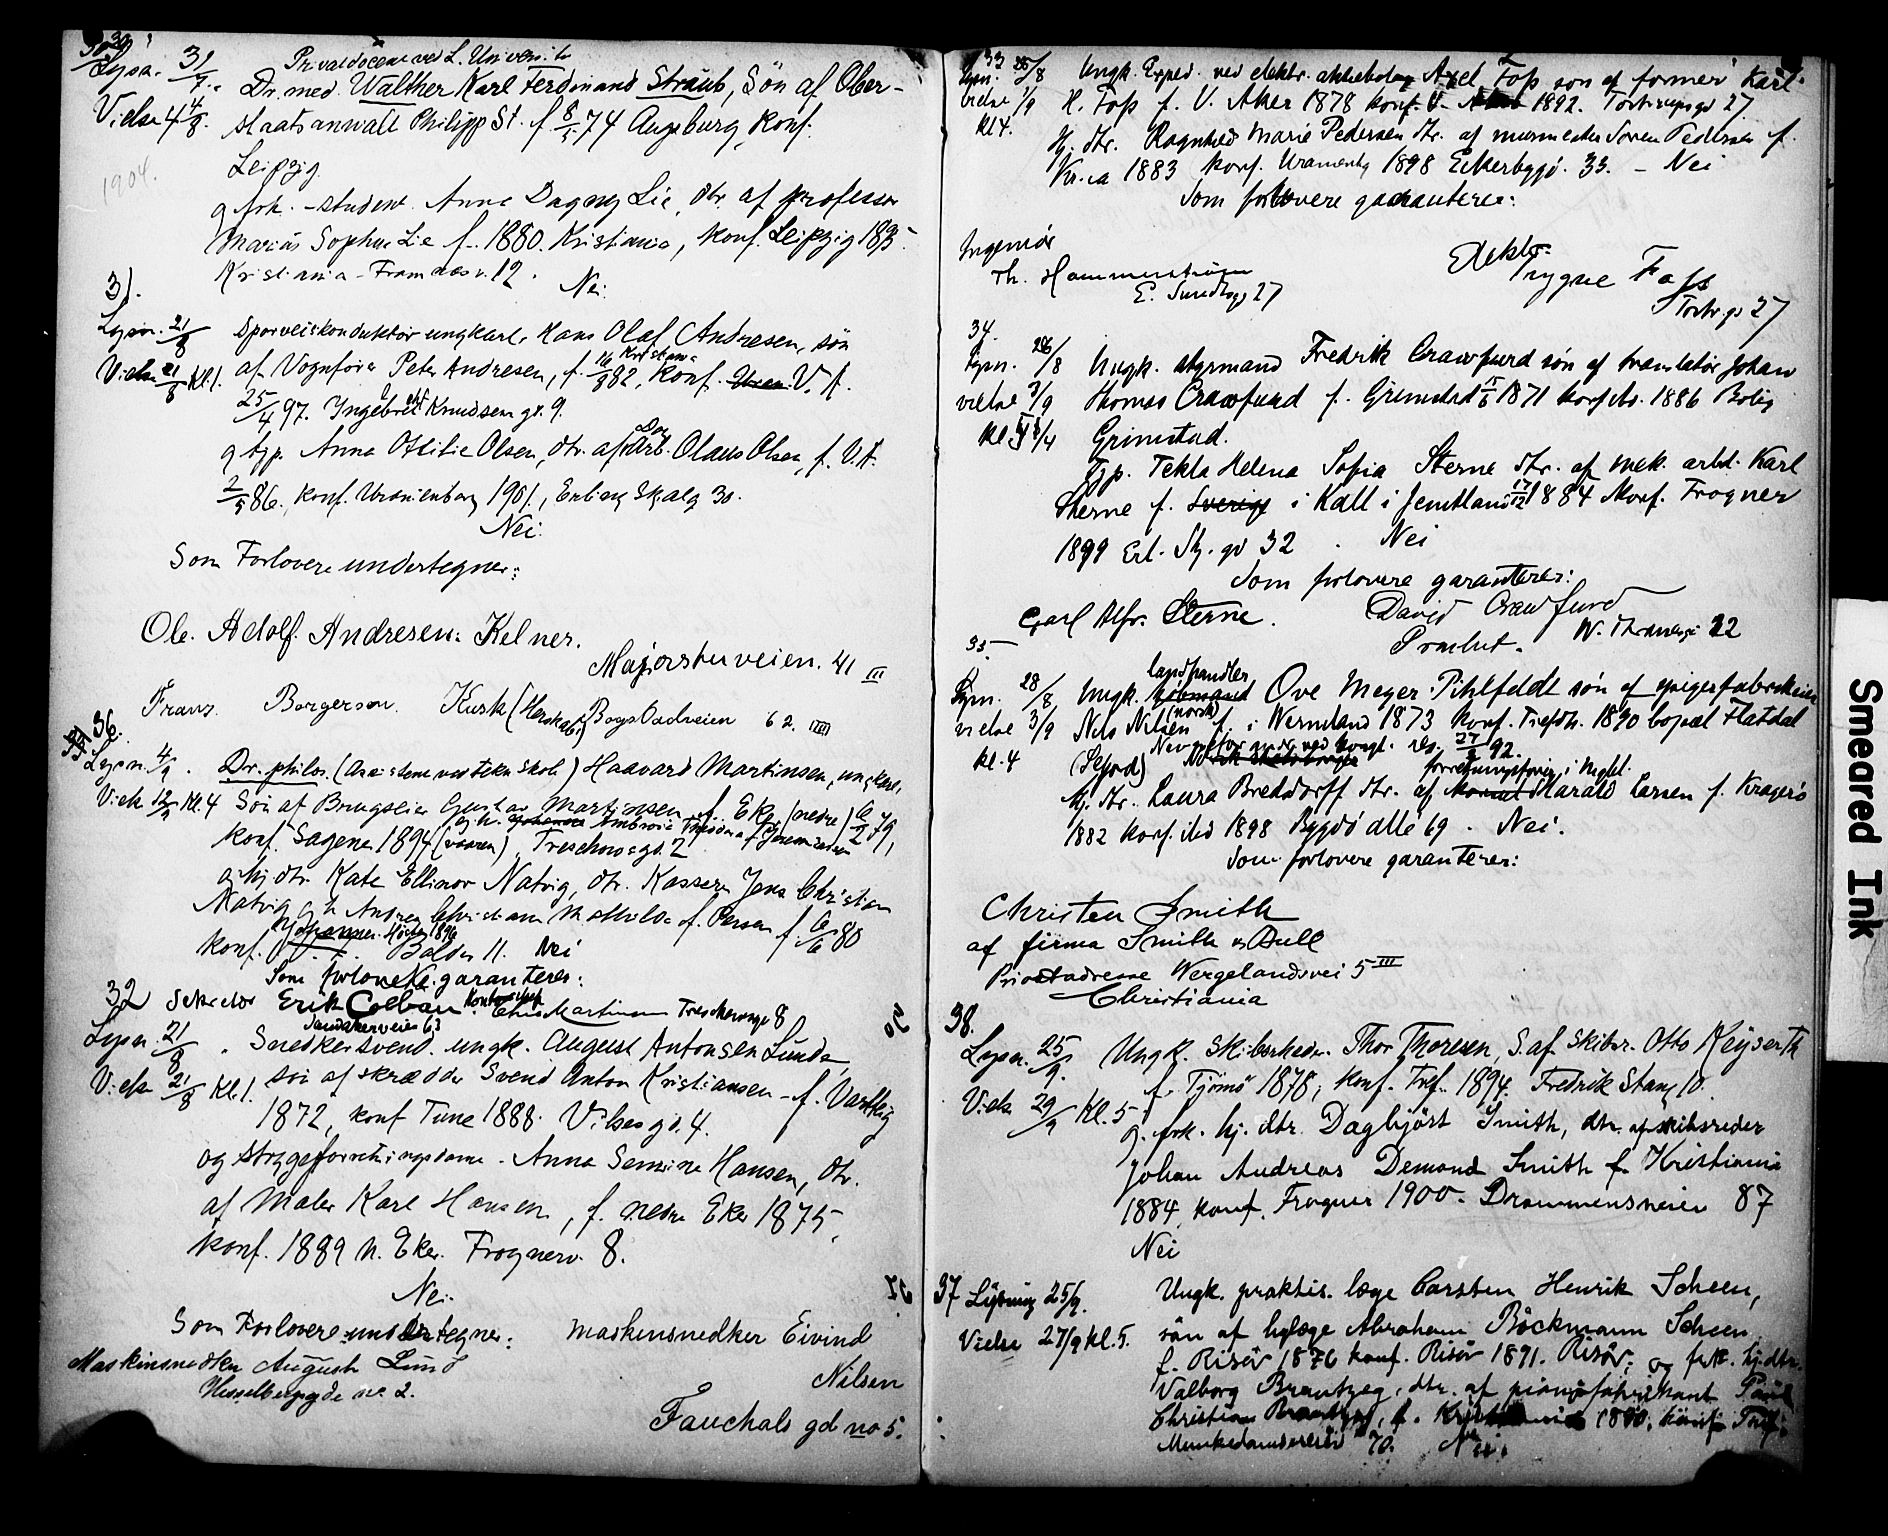 30
Lysn. 31/7. Privatdocent ved L. Universitet
Dr. med. Walther Karl Ferdinand Straub, Søn af Ober-
Vielse 4 4/8. staatsanwalt Philipp St. f. 8/5 74 Augsburg, konf.
Leipzig.
1904.
g frk. student Anna Dagny Lie, dtr. af professor
Marius Sophus Lie f. 1880. Kristiania, konf. Leipzig 1895.
Kristiania - Framnæsv. 12. Nei.
31.
Lysn. 21/8 Sporveiskonduktør ungkarl, Hans Olaf Andresen, søn
Vielse 21/8 Kl. 1. af Vognfører Peter Andresen, f. Kristiania 16/9 82, konf. V. A.
25/4 97. Ingebret Knudsen gd. 9.
g tjp. Anna Otilie Olsen, dtr. af Arb. Olaus Olsen, f. V. A.
2/5 86., konf. Uranienborg 1901, Erling Skalg 30.
Nei.
Som Forlovere undertegner:
Ole. Adolf. Andresen. Kelner.
Majorstuveien. 41 III
Franz Borgersen. Kusk (Herskabs) Bogstadveien 62. IIII
36.
Lysn. 4/9. Dr. philos. (Assistent ved tekn skole) Haavard Martinsen, ungkarl,
Vielse 12/9 Kl. 4 Søn af Brugseier Gustav Martinsen f. Eker (nedre) 6/2 79,
konf. Sagene 1894 (vaaren), Treschowsgd. 2
g hj dtr. Kate Ellinor Natvig, dtr. Kasserer Jens Christian
Natvig g h Andrea Christiane Mathilde f. Persen f. 6/6 80
konf. Johannes. Høsten 1896 Balders 11. Nei
Som forlovere garanterer:
Sekretær Erik Colban Sandakerveien 63 Chr. Martinsen Treschowsgd 8
32
Lysn. 21/8. Snedkersvend. ungk. August Antonsen Lunde,
Vielse 21/8 Kl. 1. søn af skrædder Svend Anton Kristiansen - f. Varteig
1872, konf Tune 1888. Vibesgd. 4.
og strygeforretningsdame - Anna Semine Hansen, dtr.
af Maler Karl Hansen, f. nedre Eker 1875,
konf. 1889 N. Eker. Frognerv. 8.
Nei.
Som Forlovere undertegner:
Maskinsnedker August Lund
Hesselbergsgade no. 2.
maskinsnedker Eivind
Nilsen
Fauchalds gd no 5.
33
Lysn. 25/8 Ungk. Exped. ved elektr. aktiebolag Axel Foss søn af former Karl
vielse 1/9 H. Foss f. V. Aker 1878 konf. 1892. Tostrupsgd 27
kl 4. Hj. dtr. Ragnhild Marie Pedersen dtr. af murmester Søren Pedersen f.
Kr.ia 1883 konf. Uranienbg 1898 Eckersbggd. 33. - Nei
Som forlovere garanterer:
Ingeniør
Th. Hammerstrøm
E. Sundtsg 27
Elektr.
Trygve Foss
Tostr.gd 27
34.
Lysn. 26/8 Ungk. styrmand Fredrik Crawfurd søn af translatør Johan
vielse 3/9 Thomas Crawfurd f. Grimstad 1871 konf. ibs. 1886 Bolig
Grimstad.
Tjp. Tekla Helena Sofia Sterne dtr. af mek. arbd. Karl
Sterne f. Sverige i Kall i Jemtland 17/12 1884 Konf. Frogner
1899 Erl. Sk. gd 32. Nei
Som forlovere garanterer:
Carl Alfr. Sterne.
David Crawfurd
W. Thranesgd 22
35
Lysn. 28/8 Ungk. landhandler Ove Meyer Pihlfeldt søn af spigerfabrikeier
vielse 3/9 Nils Nilsen (norsk) f. i Wermland 1873 konf. Trefdh. 1890 bopæl Flatdal
kl. 4 (Seljord) 27/8 92.
Hj. dtr. Laura Bredsdorff dtr. af forretningsfører Harald Larsen f. Kragerø
1882 konf. ibd 1898 Bygdø allé 69. Nei.
Som forlovere garanterer:
Christen Smith
af firma Smith & Bull
Privatadresse Wergelandsvei 5 III
Christiania
38.
Lysn. 25/9. Ungk. skibsreder. Thor Thoresen, S. af skibsr. Otto Keyser Th
f. Tjømø 1878, konf. Tref. 1894. Fredrik Stang 10.
Vielse 29/9 Kl. 5 g. frk. hj. dtr. Dagbjørt Smith, dtr. af skibsreder
Johan Andreas Demand Smith f. Kristiania
1884, konf. Frogner 1900. Drammensveien 87
Nei
37 Lysning 25/9. Ungk. praktis. læge Carsten Henrik Scheen,
Vielse 27/9 kl. 5. søn af læge Abraham Böckmann Scheen
f. Risør 1876 konf. Risør 1891. Risør; og frk. hj. dtr.
Valborg Brantzeg, dtr. af pianofabrikant Paul
Christian Brantzeg, f. Kristiania 1880, konf. Tref.
Munkedamsveien 70. Nei.
Smeared Ink